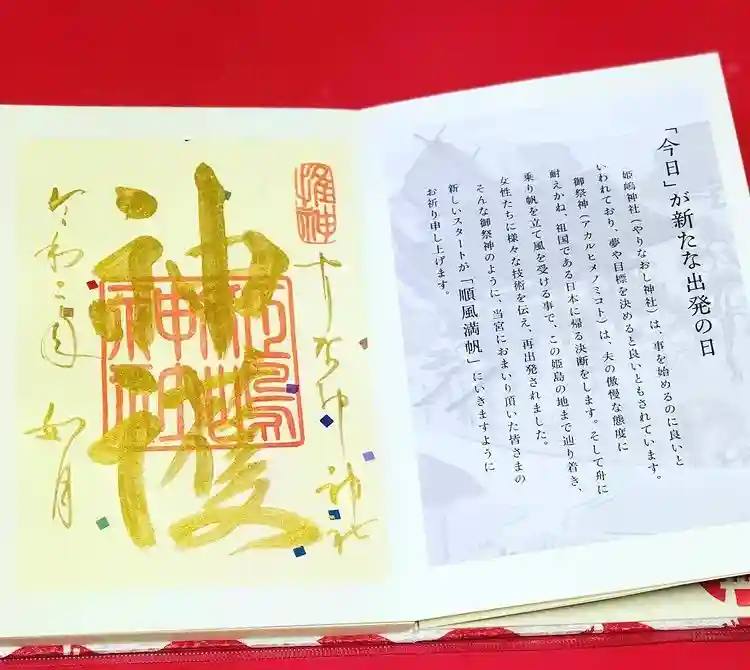 「今日」が新たな出発の日
姫嶋神社（やりなおし神社）は、事を始めるのに良いと
いわれており、夢や目標を決めると良いともされています。
御祭神（アカルヒメノミコト）は、夫の傲慢な態度に
耐えかね、祖国である日本に帰る決断をします。そして舟に
乗り帆を立て風を受ける事で、この姫島の地まで辿り着き、
女性たちに様々な技術を伝え、再出発されました。
そんな御祭神のように、当宮におまいり頂いた皆さまの
新しいスタートが「順風満帆」にいきますように
お祈り申し上げます。
神社
神
令和二年 如月